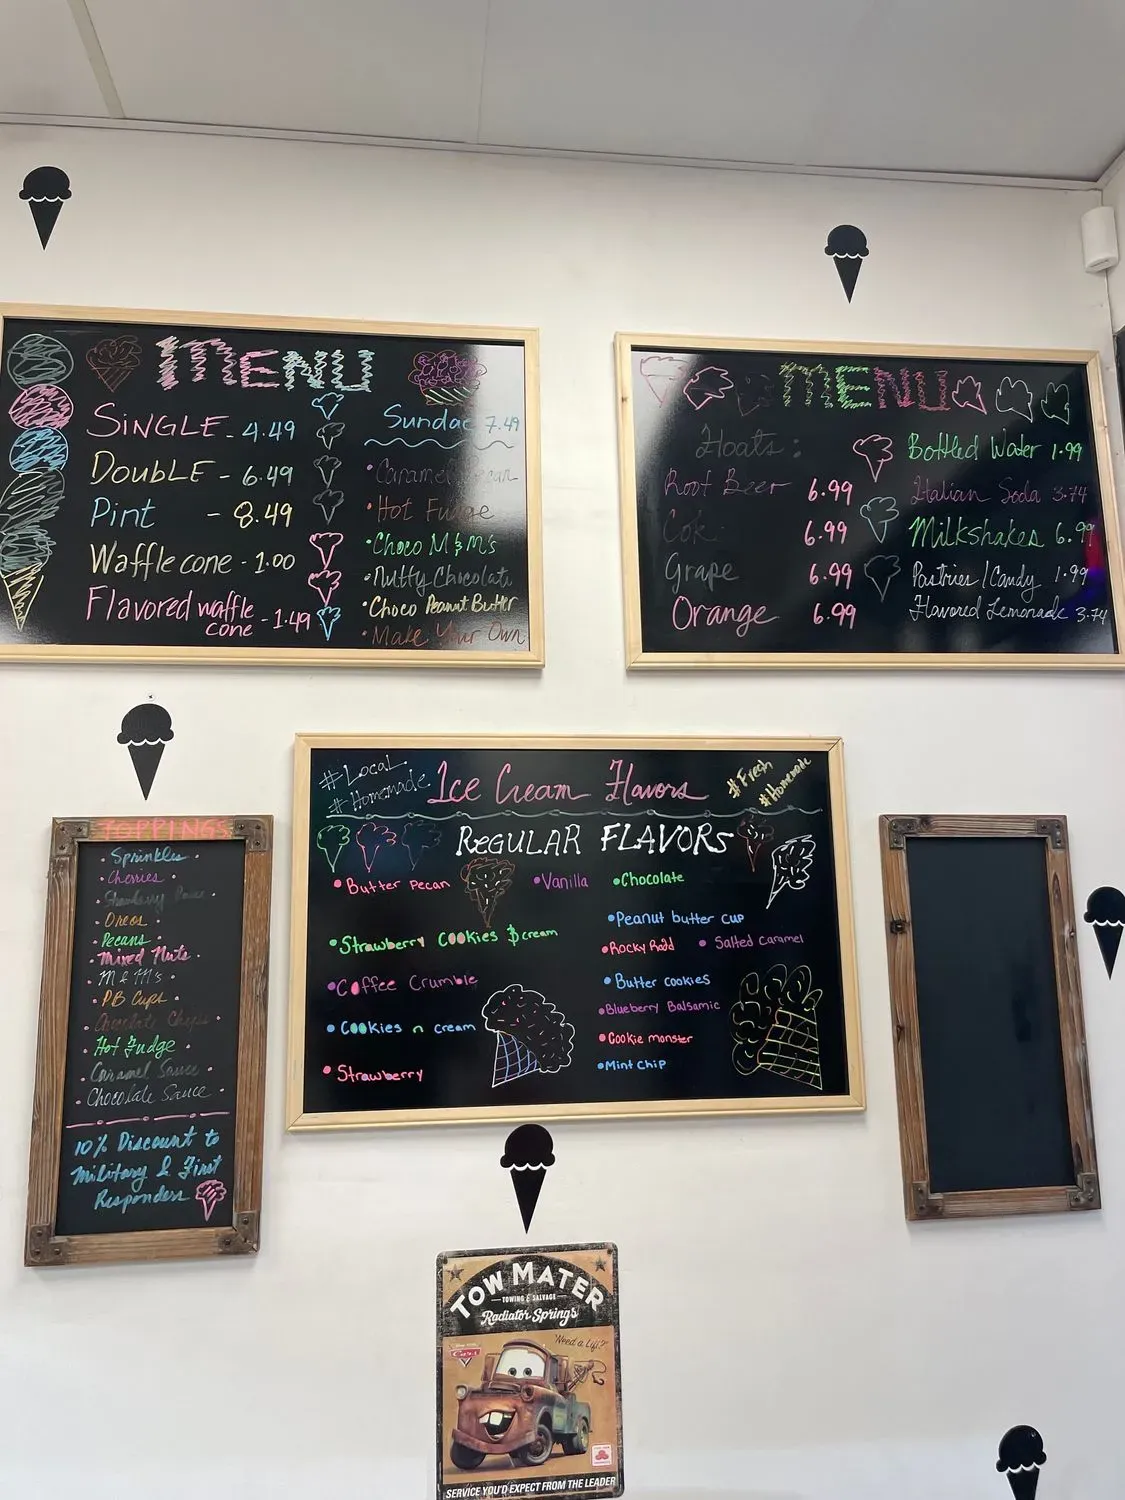 MENU
SINGLE - 4.49
DOUBLE - 6.49
Pint - 8.49
Waffle cone - 1.00
Flavored waffle
cone - 1.49
Sundae 7.49
• Caramel Pecan
• Hot Fudge
• Choco M&M's
• Nutty Chocolate
• Choco Peanut Butter
• Make Your Own
MENU
Floats:
Root Beer 6.99
Coke 6.99
Grape 6.99
Orange 6.99
Bottled Water 1.99
Italian Soda 3.74
Milkshakes 6.99
Pastries/Candy 1.99
Flavored Lemonade 3.74
#Local
#Homemade
Ice Cream Flavors
#Fresh
#Homemade
REGULAR FLAVORS
• Butter Pecan
• Vanilla
• Chocolate
• Strawberry Cookies $ cream
• Coffee Crumble
• Cookies n cream
• Strawberry
• Peanut butter cup
• Rocky Road
• Salted Caramel
• Butter cookies
• Blueberry Balsamic
• Cookie monster
• Mint Chip
TOPPINGS
• Sprinkles •
• Cherries •
• Strawberry Sauce •
• Oreos •
• Pecans •
• Mixed Nuts •
• M & M's •
• PB Cups •
• Chocolate Chips •
• Hot Fudge •
• Caramel Sauce •
• Chocolate Sauce •
10% Discount to
Military & First
Responders
TOW MATER
TOWING & SALVAGE
Radiator Springs
"Need a Lift?"
Cars
SERVICE YOU'D EXPECT FROM THE LEADER